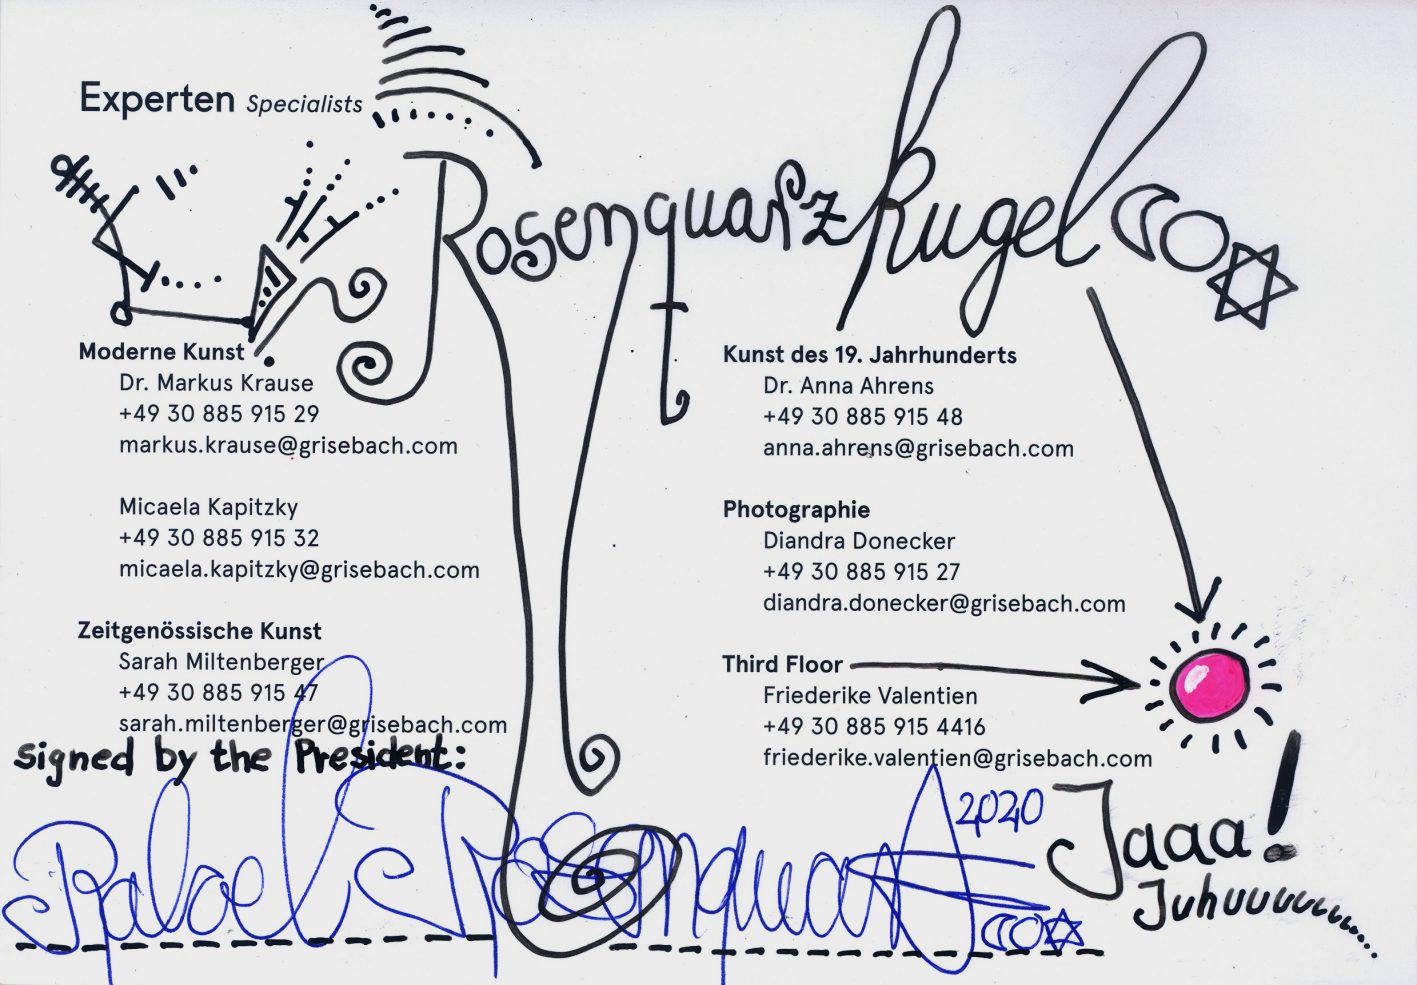 Experten Specialists
Rosenquarzkugel
Moderne Kunst
Dr. Markus Krause
+49 30 885 915 29
markus.krause@grisebach.com
Micaela Kapitzky
+49 30 885 915 32
micaela.kapitzky@grisebach.com
Zeitgenössische Kunst
Sarah Miltenberger
+49 30 885 915 47
sarah.miltenberger@grisebach.com
Kunst des 19. Jahrhunderts
Dr. Anna Ahrens
+49 30 885 915 48
anna.ahrens@grisebach.com
Photographie
Diandra Donecker
+49 30 885 915 27
diandra.donecker@grisebach.com
Third Floor
Friederike Valentien
+49 30 885 915 4416
friederike.valentien@grisebach.com
signed by the President:
Rafael Rosenquarz
2020
Jaaa!
Juhuuuuuuu....